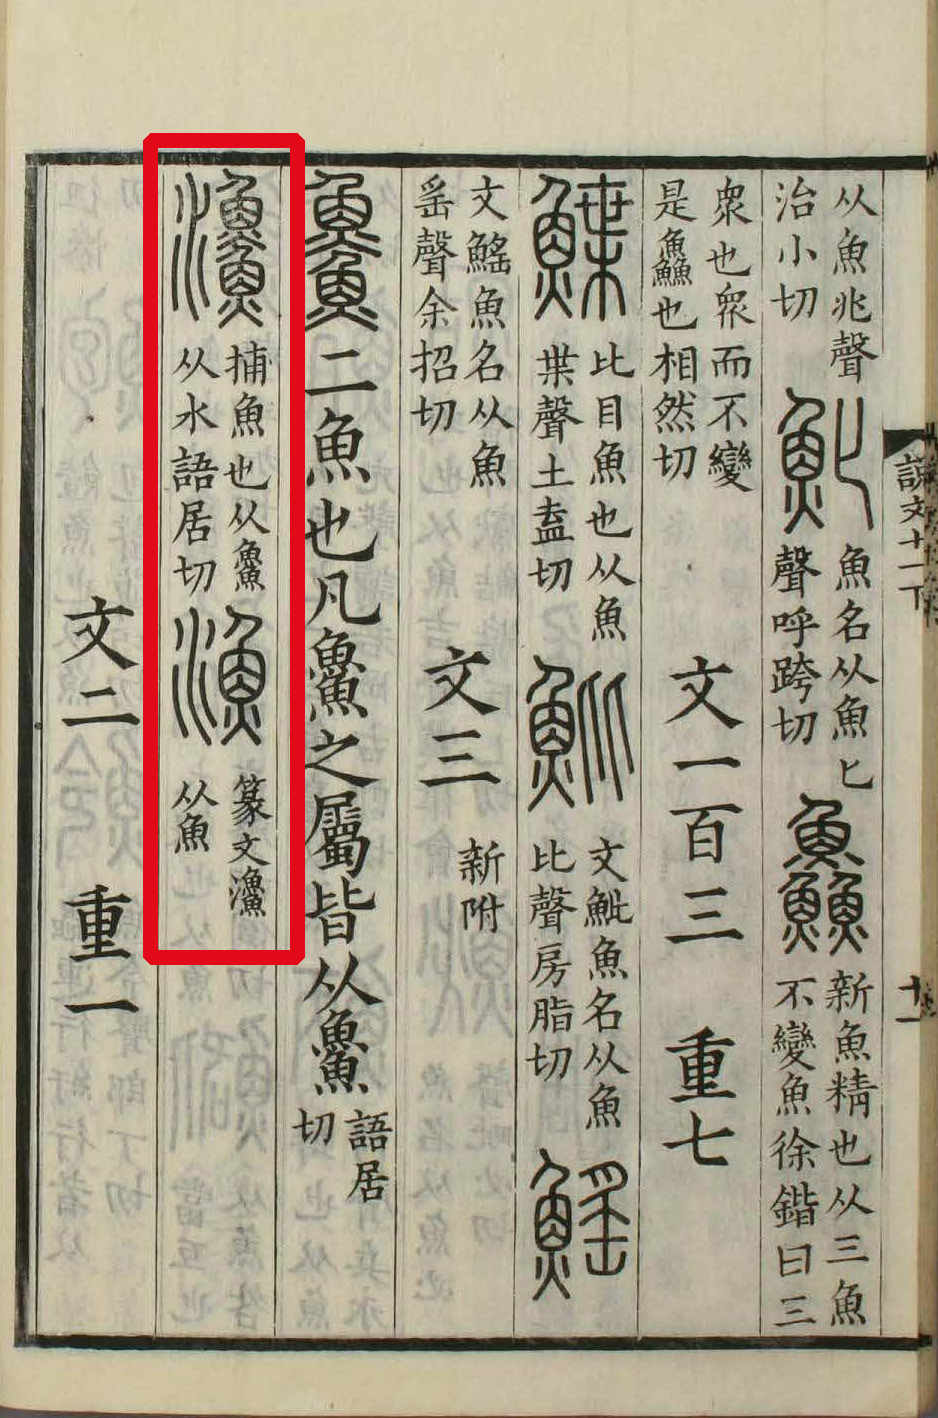 說文十一下
十一
从魚兆聲
治小切
魤
魚名从魚匕
聲呼跨切
鱻
新魚精也从三魚
不變魚徐鍇曰三
衆也衆而不變
是鱻也相然切
文一百三 重七
鰈
比目魚也从魚
枼聲土盍切
魮
文魮魚名从魚
比聲房脂切
鰩
文鰩魚名从魚
䍃聲余招切
文三 新附
𩺰二魚也凡𩺰之屬皆从𩺰
語居
切
𤅵
捕魚也从𩺰
从水語居切
漁
篆文𤅵
从魚
文二 重一